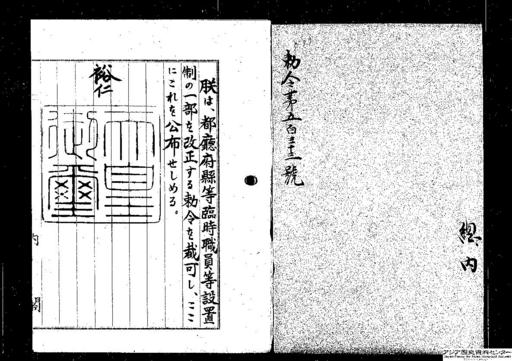 勅令第五百三十三號
總内
朕は、都廳府縣等臨時職員等設置
制の一部を改正する勅令を裁可し、ここ
にこれを公布せしめる。
裕仁
天皇御璽
内閣
アジア歴史資料センター
Japan Center for Asian Historical Records